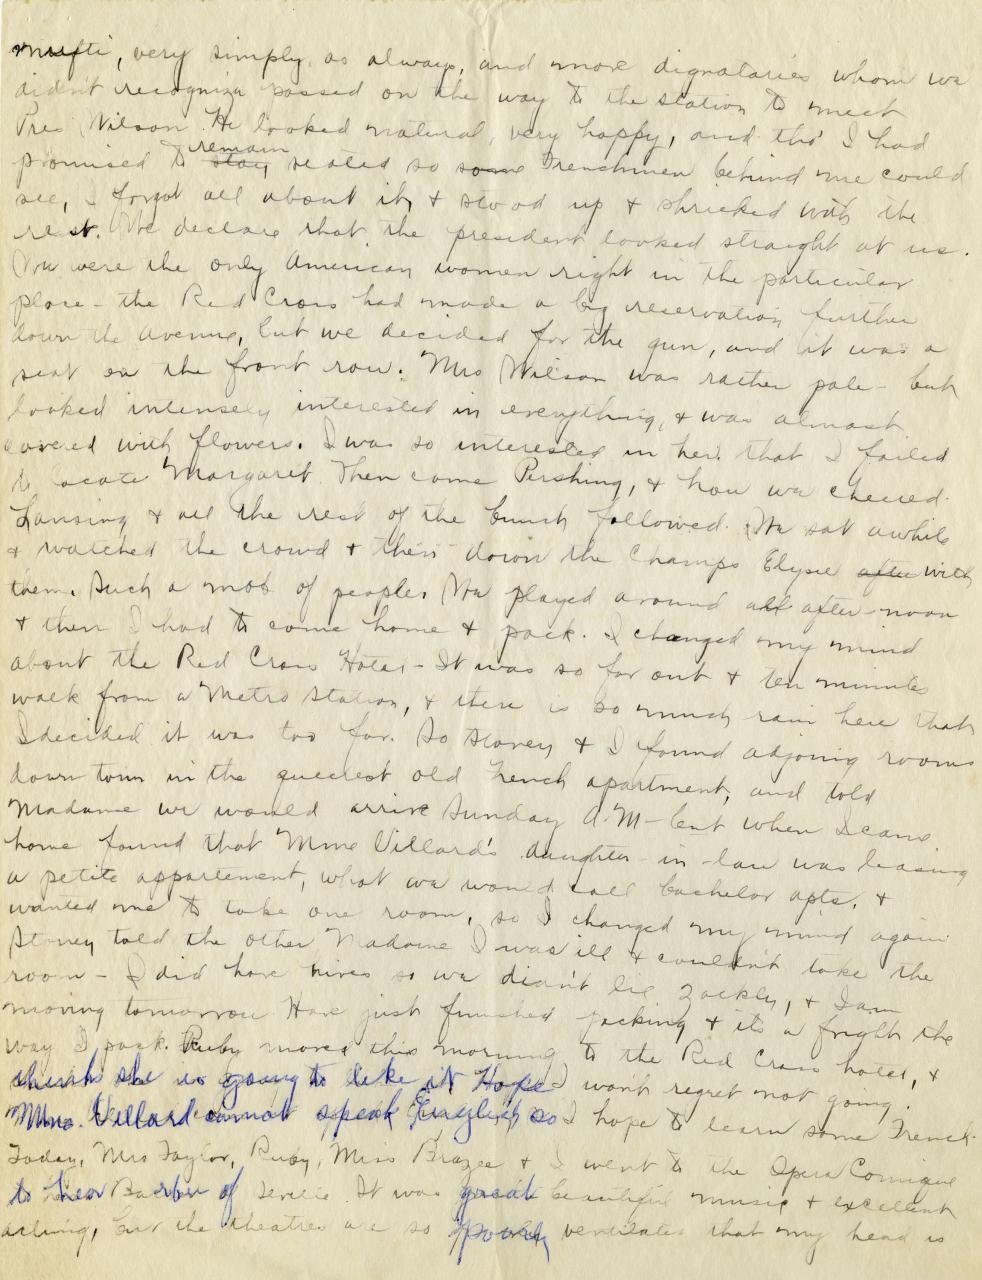 mufti, very simply, as always, and more dignataries whom we
didn't recognize passed on the way to the station to meet
Pres Wilson. He looked natural, very happy, and tho' I had
promised to stay remain seated so some Frenchmen behind me could
see, I forgot all about it, & stood up & shrieked with the
rest. We declare that the president looked straight at us.
We were the only American women right in the particular
place - the Red Cross had made a big reservation further
down the avenue, but we decided for the gun, and it was a
seat on the front row. Mrs Wilson was rather pale - but
looked intensely interested in everything, & was almost
covered with flowers. I was so interested in her that I failed
to locate Margaret. Then came Pershing, & how we cheered.
Lansing & all the rest of the bunch followed. We sat awhile
& watched the crowd & then down the Champs Elysee after with
them. Such a mob of people. We played around all after-noon
& then I had to come home & pack. I changed my mind
about the Red Cross Hotel - It was so far out & ten minutes
walk from a Metro station, & there is so much rain here that
I decided it was too far. So Storey & I found adjoing rooms
down town in the queerest old French apartment, and told
Madame we would arrive Sunday A.M - but when I came
home found that Mme Villard's daughter-in-law was leasing
a petite appartement, what we would call bachelor apts, &
wanted me to take one room, so I changed my mind again
Storey told the other Madame I was ill & couldn't take the
room - I did have hives so we didn't lie zackly, & I am
moving tomorrow. Have just finished packing & its a fright the
way I pack. Ruby moved this morning to the Red Cross hotel, &
thinks she is going to like it. Hope I won't regret not going.
Mme. Villard cannot speak English so I hope to learn some French.
Today, Mrs Taylor, Ruby, Miss Brazee & I went to the Opera Comique
to hear Barber of Seville. It was great beautiful music & excellent
acting, but the theatres are so poorly ventilated that my head is